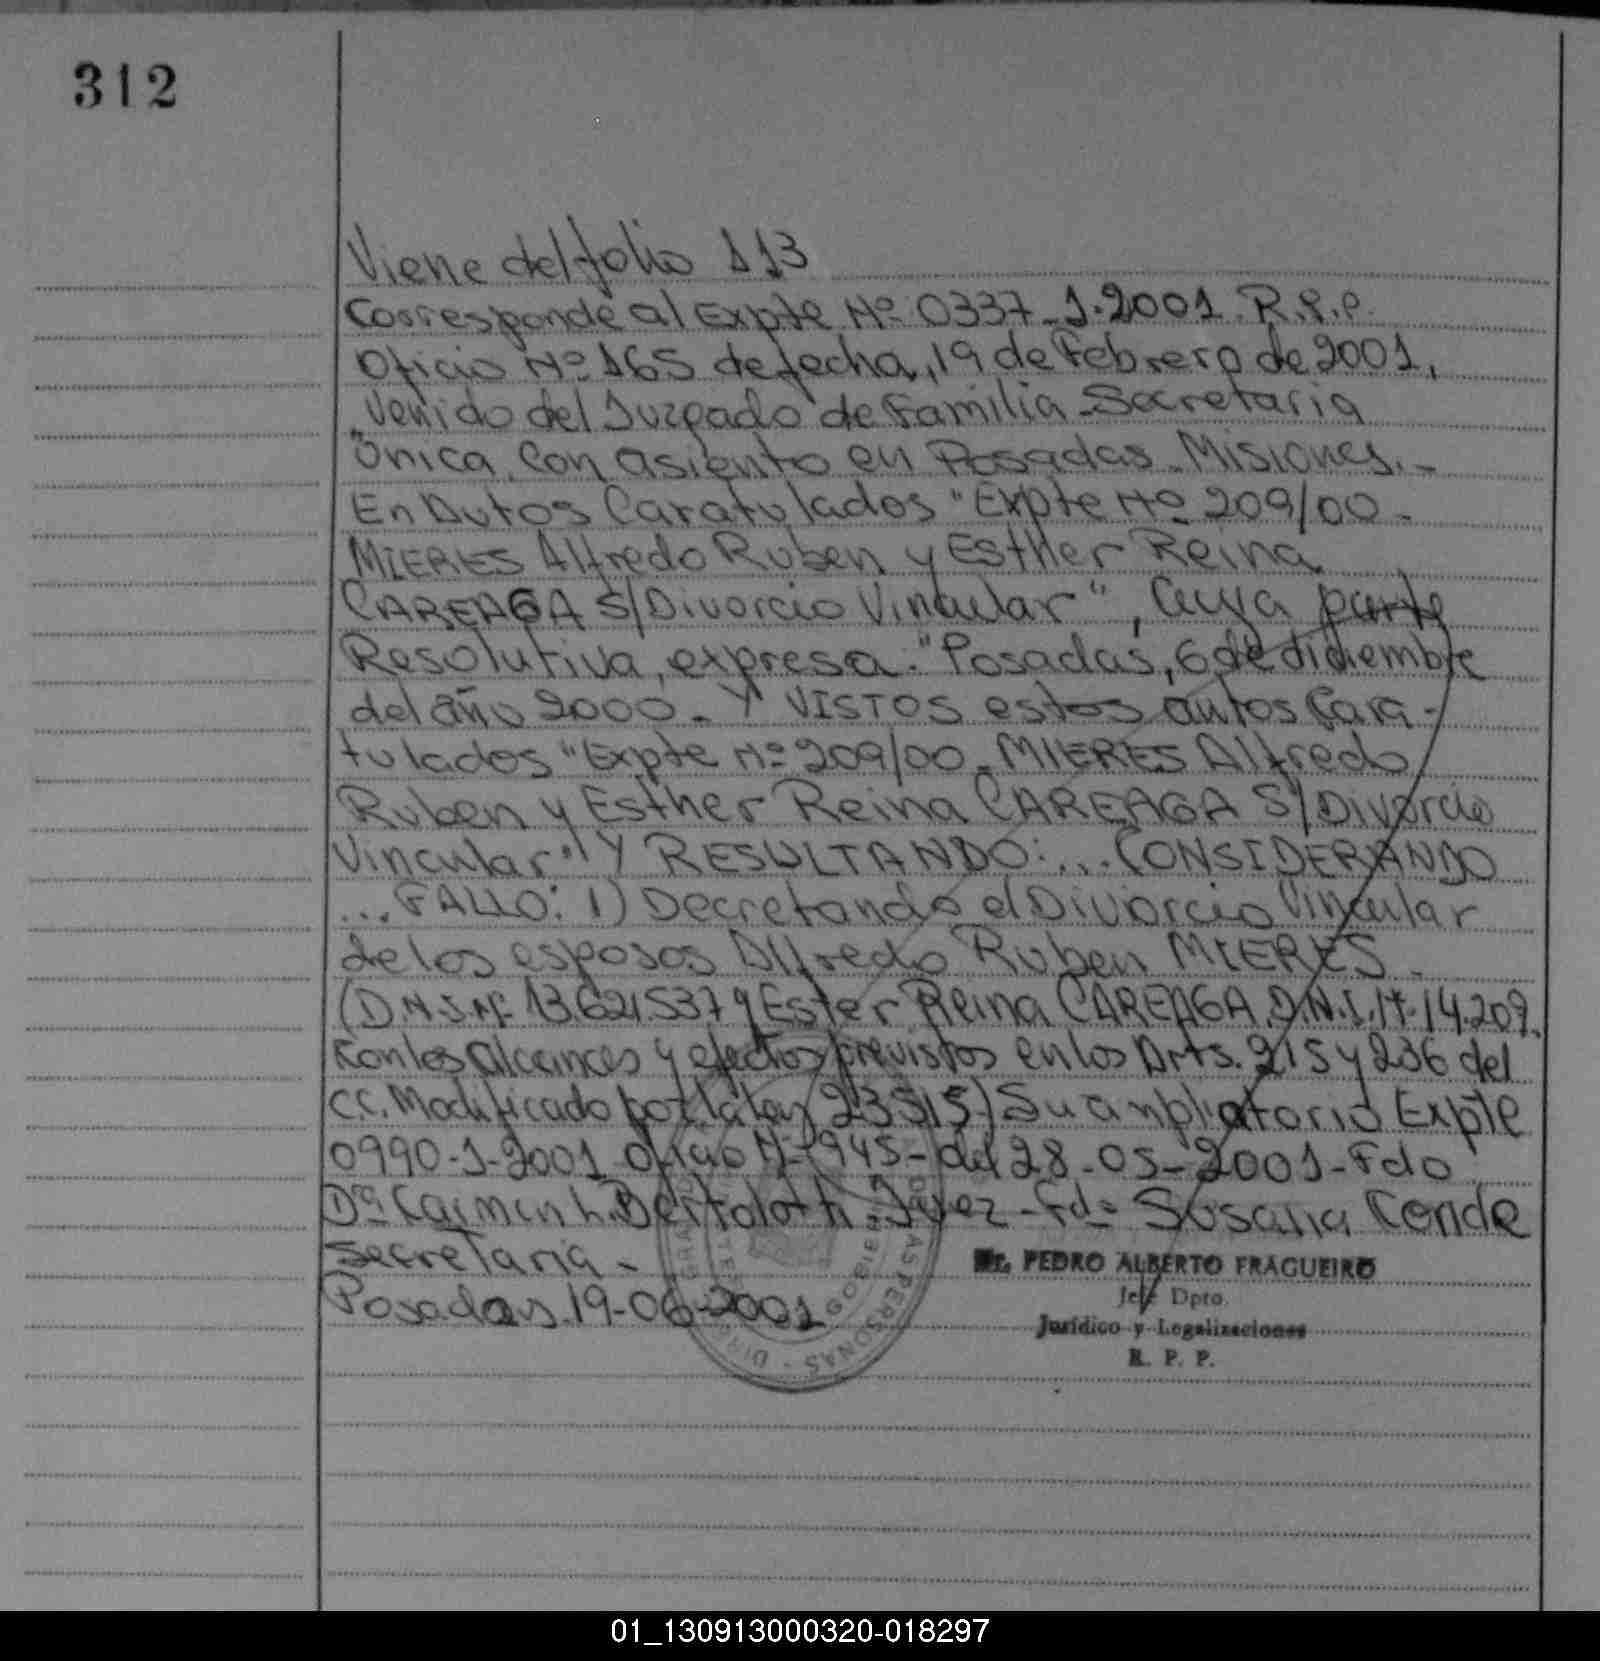 312
Viene del folio 113
Corresponde al Expte Nº 0337-1-2001. R.P.P.
Oficio Nº 165 de fecha, 19 de Febrero de 2001,
Venido del Juzgado de Familia - Secretaria
Única, con asiento en Posadas - Misiones. -
En Autos Caratulados "Expte Nº 209/00 -
MIERES Alfredo Ruben y Esther Reina
CAREAGA S/Divorcio Vincular", Cuya parte
Resolutiva, expresa: "Posadas, 6 de diciembre
del año 2000. - Y VISTOS estos autos Cara-
tulados "Expte Nº 209/00 - MIERES Alfredo
Ruben y Esther Reina CAREAGA S/Divorcio
Vincular" Y RESULTANDO: ... CONSIDERANDO
... FALLO: 1) Decretando el Divorcio Vincular
de los esposos Alfredo Ruben MIERES -
(D.N.I. Nº 13.621.537 y Ester Reina CAREAGA, D.N.I. Nº 14.209.
Con los alcances y efectos previstos en los Arts. 215 y 236 del
C.C. Modificado por la Ley 23515) Su ampliatorio Expte
0990-1-2001 Oficio Nº 945 - del 28-05-2001 - Fdo
Dra Carmen L. Bertolotti - Juez - Fdo Susana Conde
Secretaria -
Posadas, 19-06-2001
PEDRO ALBERTO FRAGUEIRO
Jefe Dpto.
Jurídico y Legalizaciones
R. P. P.
PERSONAS
01_130913000320-018297